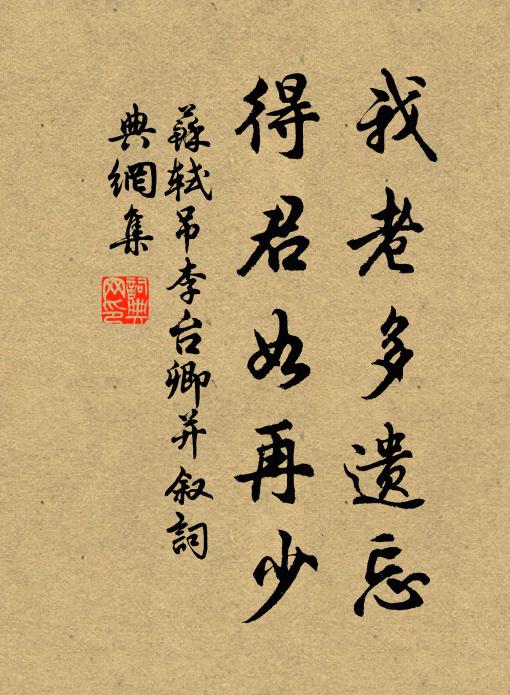 我老多遗忘
得君如再少
蘇軾吊李台卿并叙詞
典網集
詞典网印